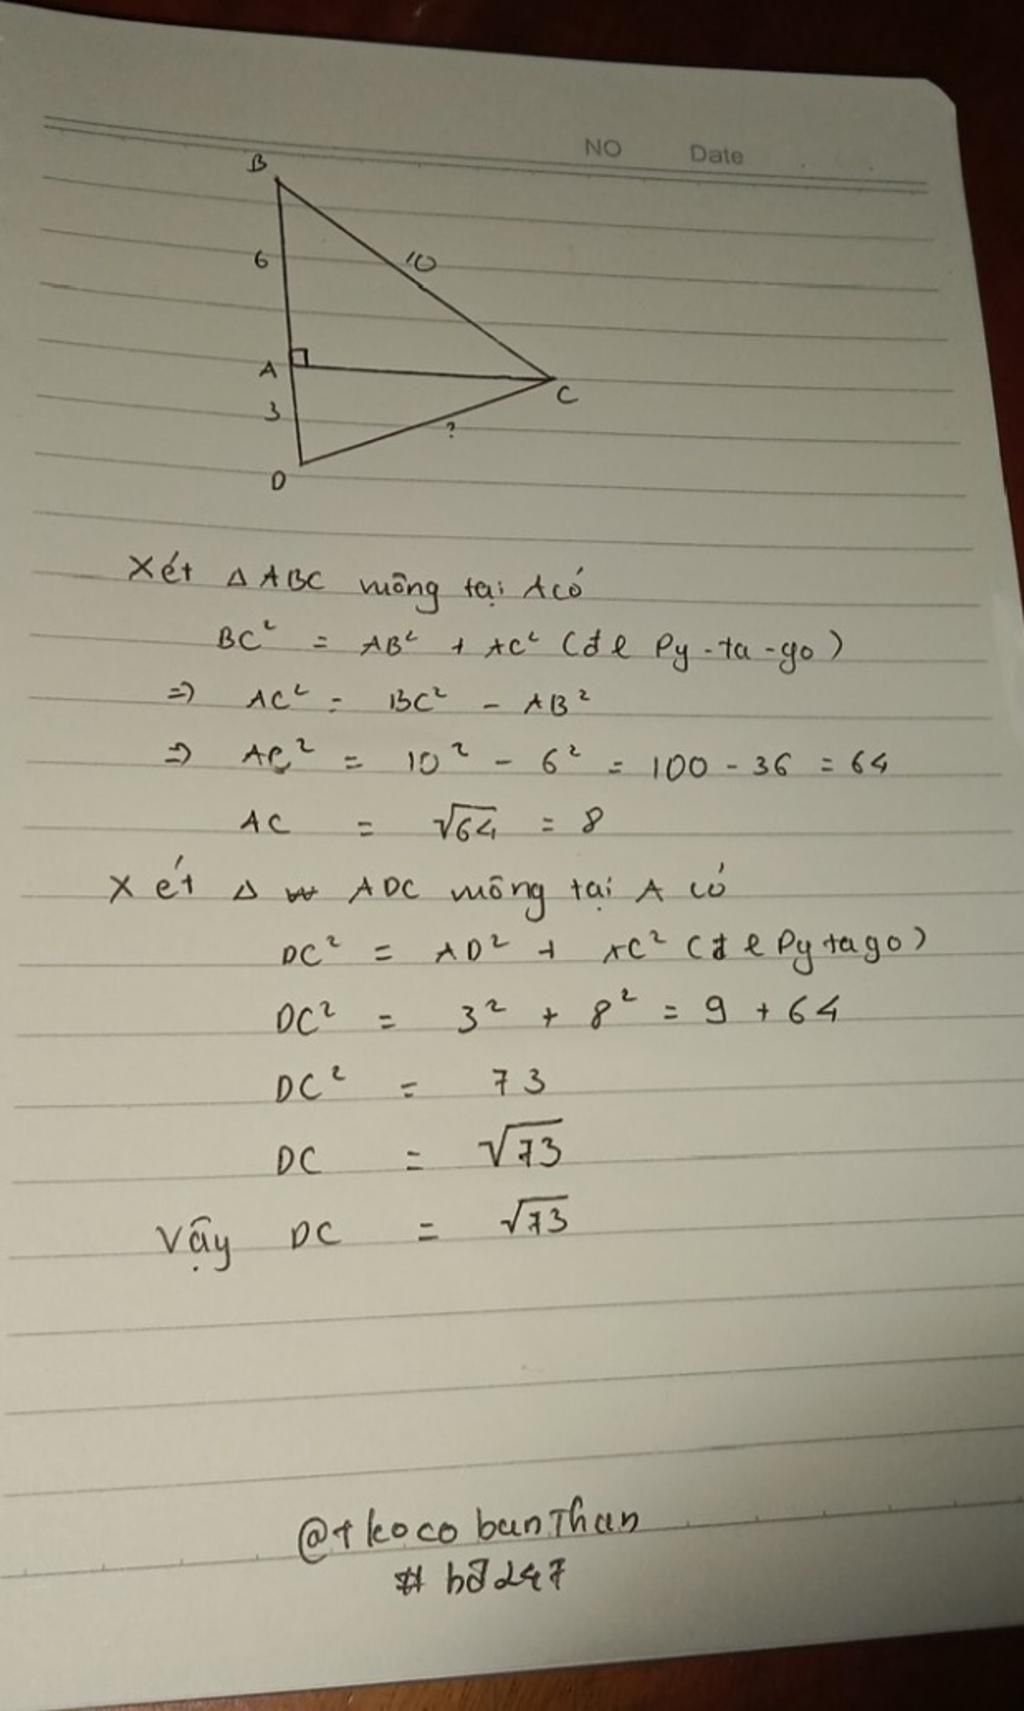 NO Date
B
6
10
A
C
3
?
D
Xét Δ ABC vuông tại A có
BC² = AB² + AC² (đl Py-ta-go)
=> AC² = BC² - AB²
=> AC² = 10² - 6² = 100 - 36 = 64
AC = √64 = 8
Xét Δ ADC vuông tại A có
DC² = AD² + AC² (đl Pytago)
DC² = 3² + 8² = 9 + 64
DC² = 73
DC = √73
Vậy DC = √73
@tkocobanThan
# hđ247